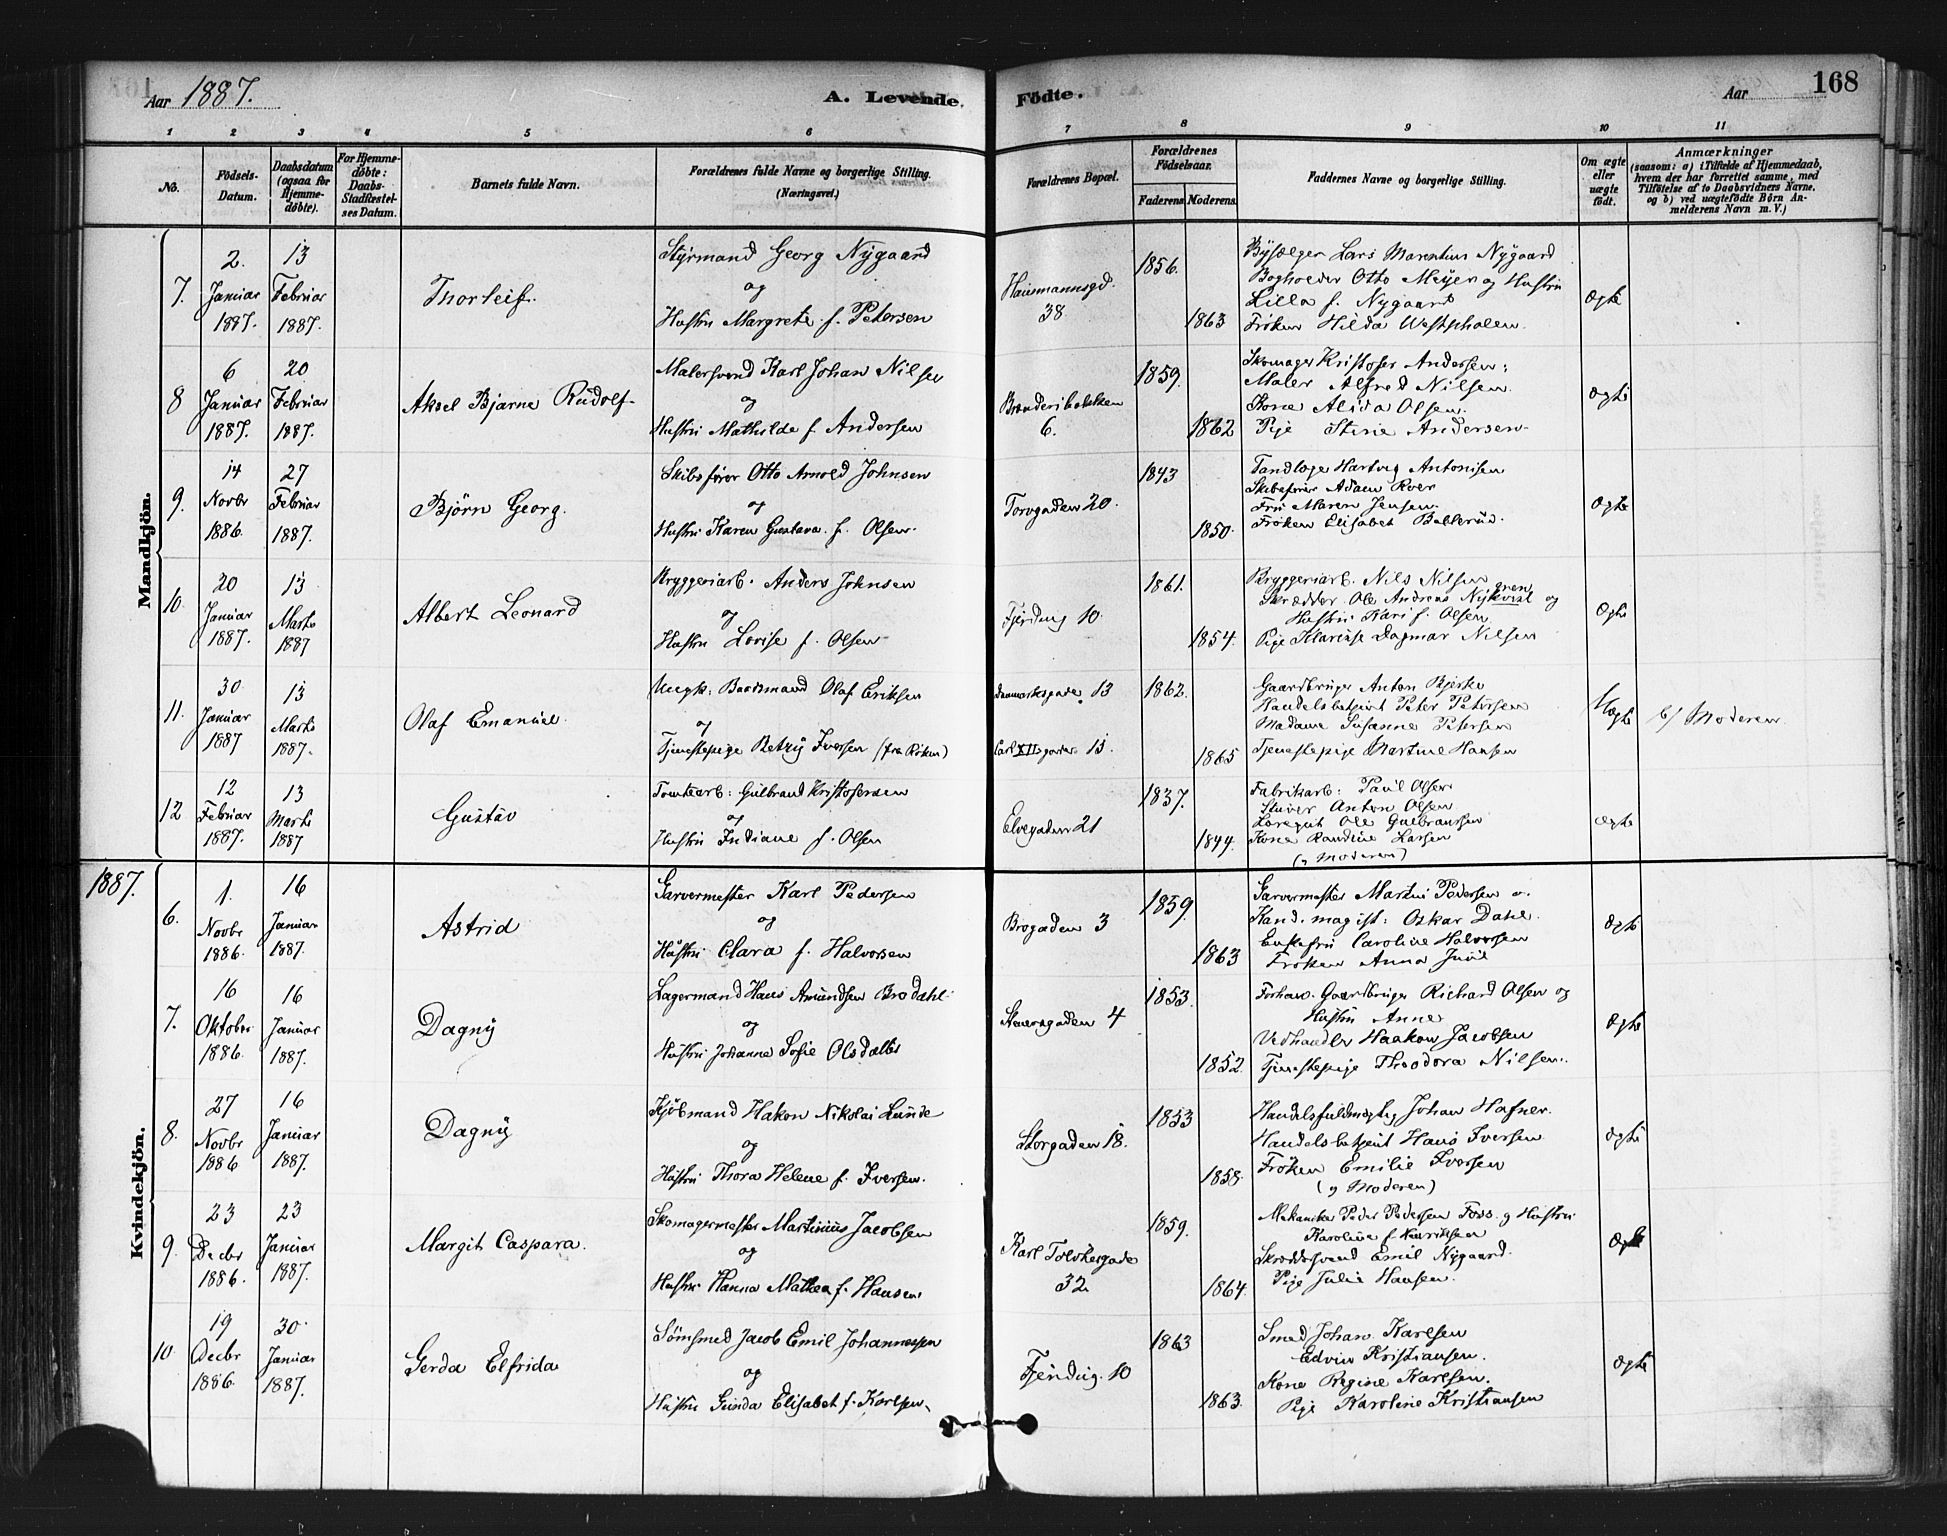 Aar 1887.
A. Levende Födte.
Aar
168
1 2 3 4 5 6 7 8 9 10 11
No.
Födsels-Datum.
Daabsdatum (ogsaa for Hjemmedöbte).
For Hjemmedöbte: Daabs-Stadfæstelses Datum.
Barnets fulde Navn.
Forældrenes fulde Navne og borgerlige Stilling. (Næringsvei.)
Forældrenes Bopæl.
Forældrenes Födselsaar.
Faderens. Moderens.
Faddernes Navne og borgerlige Stilling.
Om ægte eller uægte födt.
Anmærkninger
(saasom: a) i Tilfælde af Hjemmedaab, hvem der har forrettet samme, med Tilföielse af to Daabsvidners Navne, og b) ved uægtefödte Börn Anmelderens Navn m. V.)
Mandkjön.
7. 2. Januar 1887. 13 Februar 1887.
Thorleif.
Styrmand Georg Nygaard
og
Hustru Margrete f. Petersen
Hausmannsgd. 38.
1856. 1863
Bysælger Lars Martinius Nygaard
Bogholder Otto Meyer og Hustru
Lilla f. Nygaard
Fröken Hilda Westphalen.
Ægte
8 6 Januar 1887. 20 Februar 1887.
Aksel Bjarne Rudolf
Malersvend Karl Johan Nilsen
og
Hustru Mathilde f. Andersen
6.
1859. 1862
Skomager Kristofer Andersen;
Maler Alfred Nilsen.
Kone Alida Olsen.
Pige Stine Andersen
Ægte
9. 14 Novbr 1886. 27 Februar 1887.
Bjørn Georg.
Skibsfører Otto Arnold Johnsen
og
Hustru Karen Gustava f. Olsen
Torvgaden 20.
1843 1850.
Tandlæge Hartvig Antonisen
Skibsfører Adam Roer
Fru Maren Jensen.
Frøken Elisabet Ballerud.
Ægte
10. 20 Januar 1887. 13 Marts 1887
Albert Leonard
Bryggeriarb. Anders Johnsen
og
Hustru Lovise f. Olsen
Fjerding 10.
1861. 1854.
Bryggeriarb. Nils Nilsen
Skrædder Ole Andreas og
Hustru Kari f. Olsen
Pige Dagmar Nilsen
Ægte
11. 30. Januar 1887 13 Marts 1887.
Olaf Emanuel.
Ungk: Baadsmand Olaf Eriksen
og
Tjenestepige Betzy Iversen (fra Røken)
Danmarksgade 13
Carl XII gades 13.
1862. 1865
Gaardbruger Anton Bjerke
Handelsbetjent Peter Petersen
Madame Susanne Petersen
Tjenestepige Martine Hansen
Uægte
b/ Moderen
12 12 Februar 1887. 13 Marts 1887
Gustav
Tomtearb: Gulbrand Kristofersen
og
Hustru Indiane f. Olsen
Elvegaden 21
1837. 1844.
Fabrikarb: Paul Olsen
Stuver Anton Olsen
Løregut Ole Gulbransen
Kone Randine Larsen
(og Moderen)
Ægte
1887.
Kvindekjön.
6. 1. Novbr 1886. 16 Januar 1887.
Astrid
Garvermester Karl Pedersen
og
Hustru Clara f. Halvorsen
Brogaden 3
1859. 1863
Garvermester Martin Pedersen
Kand. magist: Oskar Dahl.
Enkefru Caroline Halvorsen
Frøken Anna Juul
Ægte
7. 16 Oktober 1886. 16 Januar 1887.
Dagny
Lagermand Hans Amundsen Brodahl
og
Hustru Johanne Sofie Olsdatter
4
1853. 1852.
Forhen. Gaardbruger Richard Olsen og
Hustru Anne
Vedhandler Haakon Jacobsen
Tjenestepige Theodora Nilsen.
Ægte
8. 27 Novbr 1886 16 Januar 1887.
Dagny
Kjøbmand Hakon Nikolai Lunde
og
Hustru Thora Helene f. Iversen.
Storgaden 18.
1853 1858.
Handelsfuldmægtig Johan Hafner.
Handelsbetjent Hans Iversen
Frøken Emilie Iversen
(og Moderen)
Ægte
9. 23 Decbr 1886. 23 Januar 1887.
Margit Caspara.
Skomagermester Martinius Jacobsen
og
Hustru Hanna Mathea f. Hansen
32
1859. 1864.
Mekaniker Peder Pedersen Foss. og Hustru
Karoline f. Henriksen
Skræddersvend Emil Nygaard.
Pige Julie Hansen.
Ægte
10 19 Decbr 1886. 30 Januar 1887.
Gerda Elfrida
Sømsmed Jacob Emil Johannessen
og
Hustru Gunda Elisabet f. Karlsen
Fjerding. 10
1863 1863.
Smed Johan Karlsen
Edvin Kristiansen.
Kone Regine Karlsen.
Pige Karoline Kristiansen
Ægte